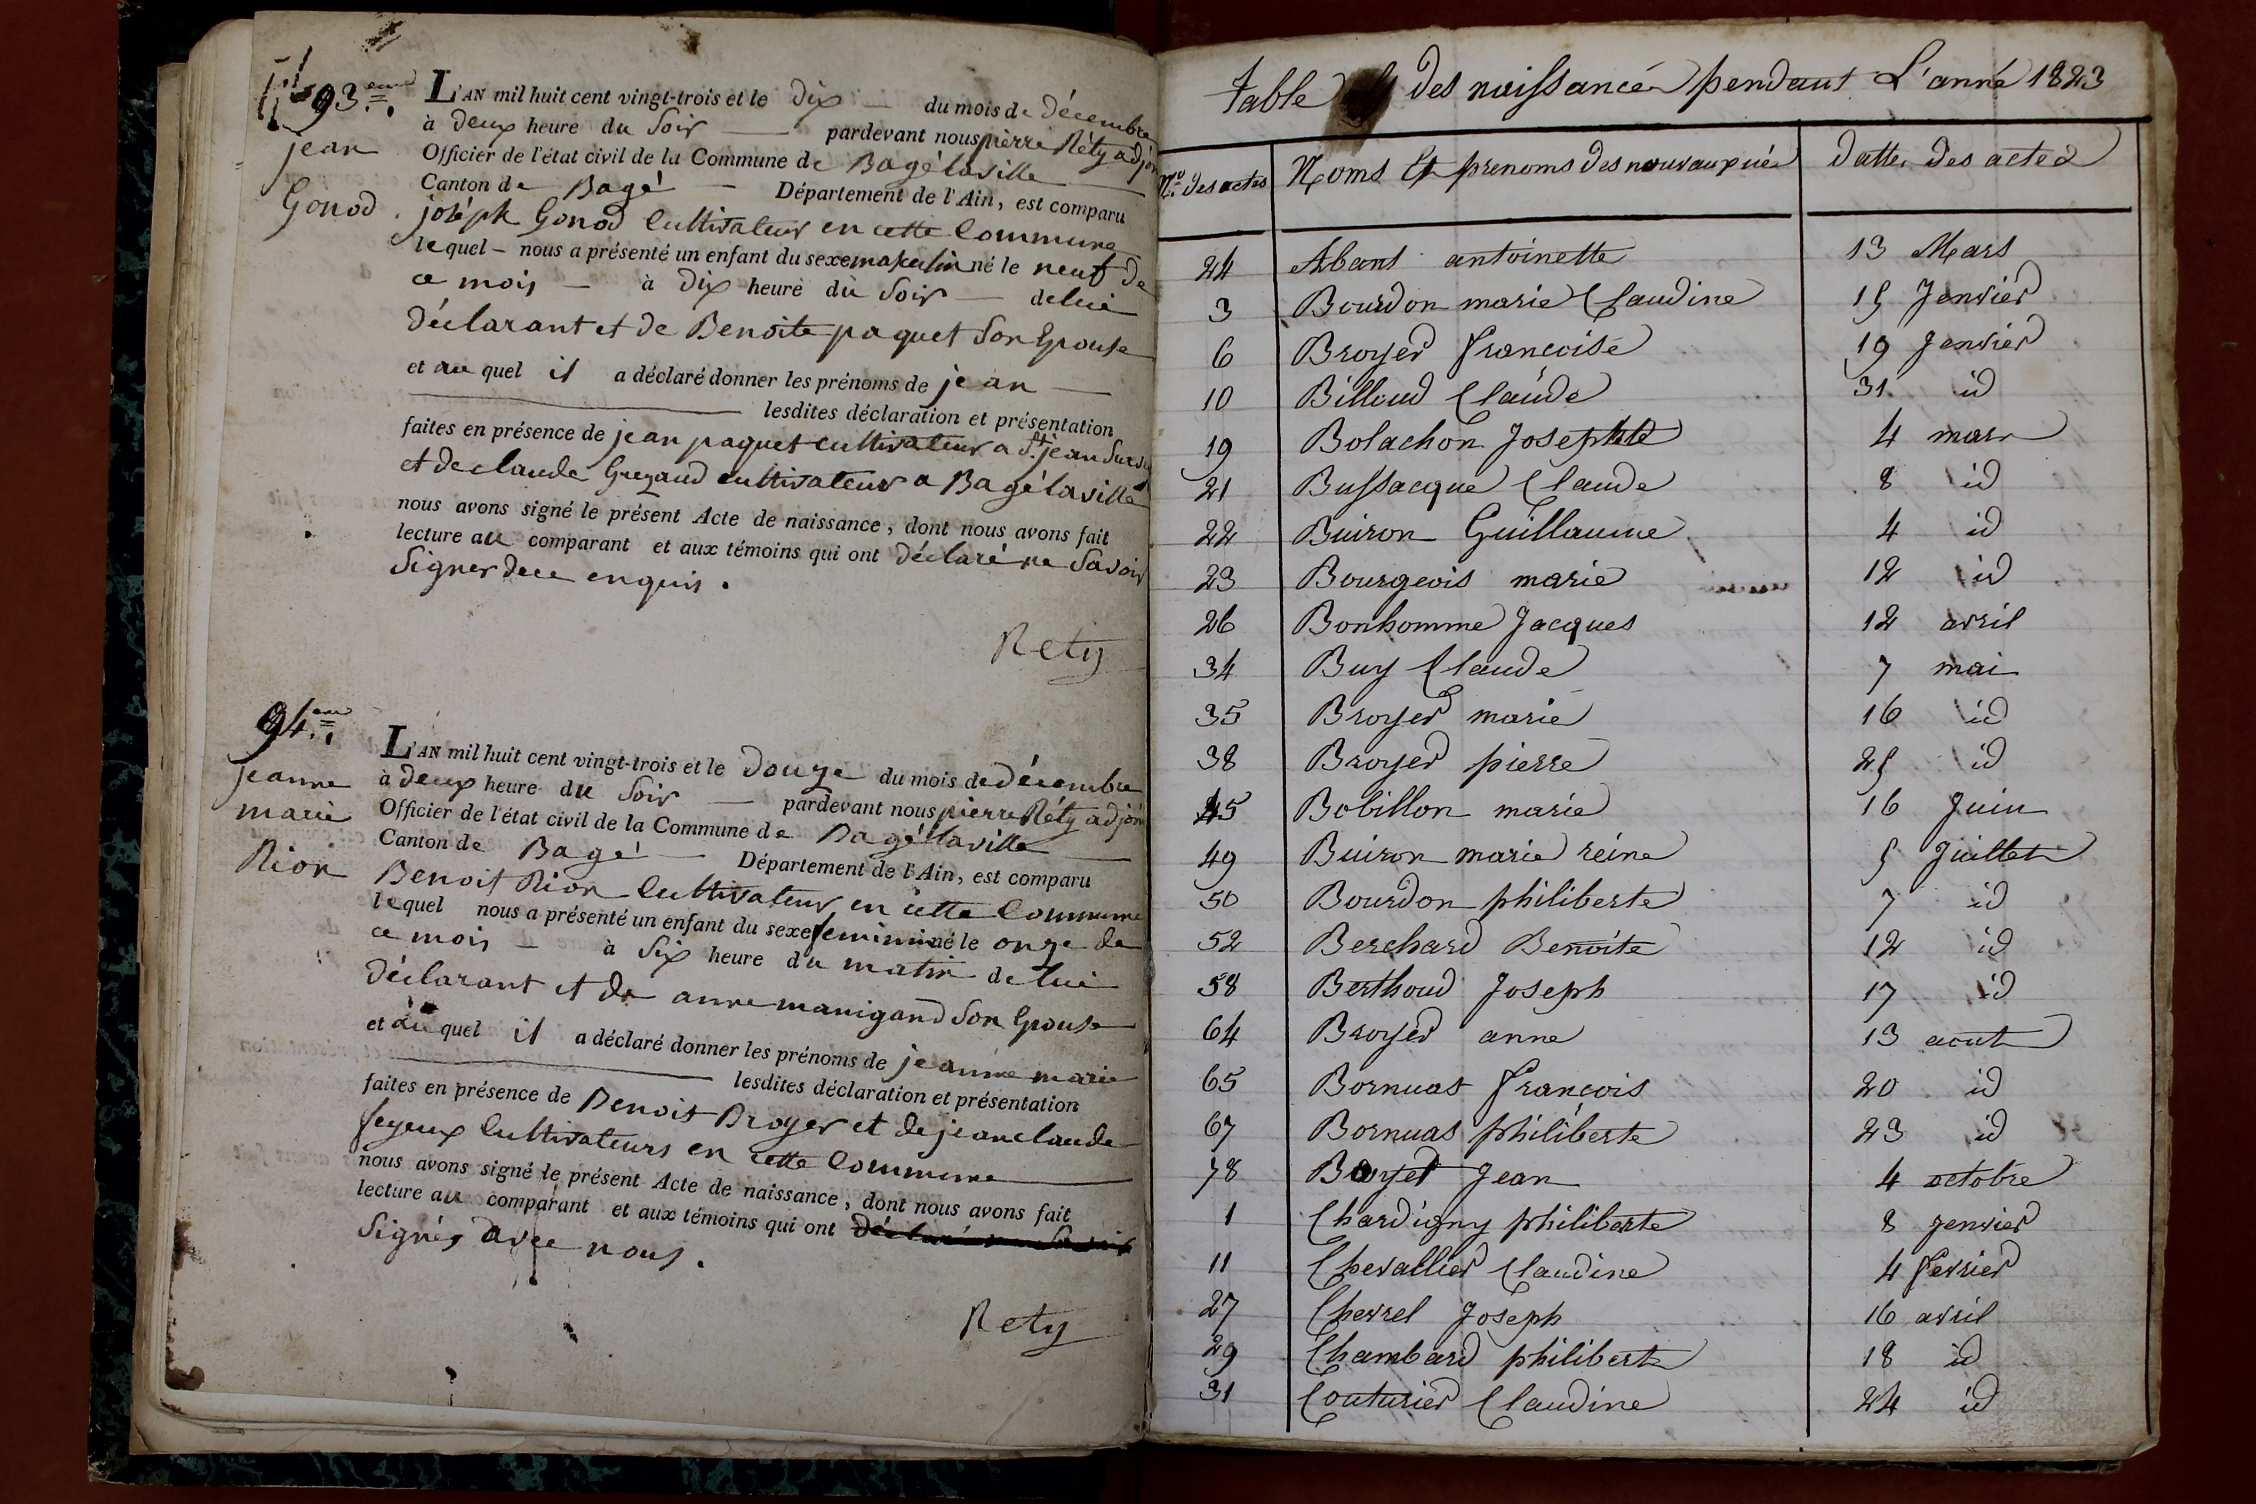 93.eme
jean
Gonod.
L'AN mil huit cent vingt-trois et le dix du mois de décembre
à deux heure du soir pardevant nous pierre Réty adjoi
Officier de l'état civil de la Commune de Bagé laville
Canton de Bagé Département de l'Ain, est comparu
joséph Gonod cultivateur en cette Commune
lequel nous a présenté un enfant du sexe masculin né le neuf de
ce mois à dix heure du soir de lui
déclarant et de Benoite paquet son Epouse
et au quel il a déclaré donner les prénoms de jean
lesdites déclaration et présentation
faites en présence de jean paquet cultivateur a St. jean sur
et de claude Guyaud cultivateur a Bagé laville
nous avons signé le présent Acte de naissance, dont nous avons fait
lecture au comparant et aux témoins qui ont déclaré ne savoir
signer de ce enquis.
Rety
94.eme
jeanne
marie
Rion
L'AN mil huit cent vingt-trois et le douze du mois de décembre
à deux heure du soir pardevant nous pierre Réty adjoi
Officier de l'état civil de la Commune de Bagé laville
Canton de Bagé Département de l'Ain, est comparu
Benoit Rion cultivateur en cette Commune
lequel nous a présenté un enfant du sexe feminin né le onze de
ce mois à six heure du matin de lui
déclarant et de anne manigand son Epouse
et au quel il a déclaré donner les prénoms de jeanne marie
lesdites déclaration et présentation
faites en présence de Benoit Broyer et de jean claude
feyeux cultivateurs en cette Commune
nous avons signé le présent Acte de naissance, dont nous avons fait
lecture au comparant et aux témoins qui ont déclaré ne savoir
signés avec nous.
Rety
Table des naissances pendant L'anné 1823
No. des actes Noms Et prenoms des nouveaux nés datte des actes
24 Abant antoinette 13 Mars
3 Bourdon marie Claudine 15 Janvier
6 Broyer francoise 19 Janvier
10 Billoud Claude 31 id
19 Bolachon Josephte 4 mars
21 Bussacque Claude 8 id
22 Buiron Guillaume 4 id
23 Bourgeois marie 12 id
26 Bonhomme Jacques 12 avril
34 Buy Claude 7 mai
35 Broyer marie 16 id
38 Broyer pierre 25 id
45 Bobillon marie 16 Juin
49 Buiron marie reine 5 Juillet
50 Bourdon philiberte 7 id
52 Berchard Benoite 12 id
58 Berthoud Joseph 17 id
64 Broyer anne 13 aout
65 Bornuat François 20 id
67 Bornuas philiberte 23 id
78 Broyer Jean 4 octobre
1 Chardigny philiberte 8 Janvier
11 Chevallier Claudine 4 fevrier
27 Chevrel Joseph 16 avril
29 Chambard philibert 18 id
31 Couturier Claudine 24 id